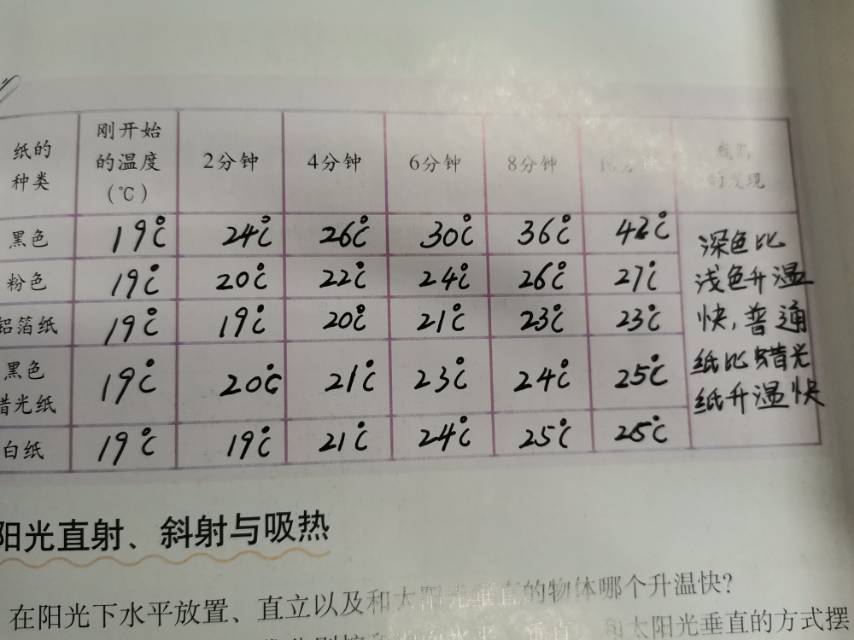 纸的
种类
刚开始
的温度
(℃)
2分钟
4分钟
6分钟
8分钟
的发现
黑色 19℃ 24℃ 26℃ 30℃ 36℃ 42℃
粉色 19℃ 20℃ 22℃ 24℃ 26℃ 27℃
铝箔纸 19℃ 19℃ 20℃ 21℃ 23℃ 23℃
黑色
蜡光纸 19℃ 20℃ 21℃ 23℃ 24℃ 25℃
白纸 19℃ 19℃ 21℃ 24℃ 25℃ 25℃
深色比
浅色升温
快,普通
纸比蜡光
纸升温快
阳光直射、斜射与吸热
在阳光下水平放置、直立以及和太阳光垂直的物体哪个升温快?
和太阳光垂直的方式摆